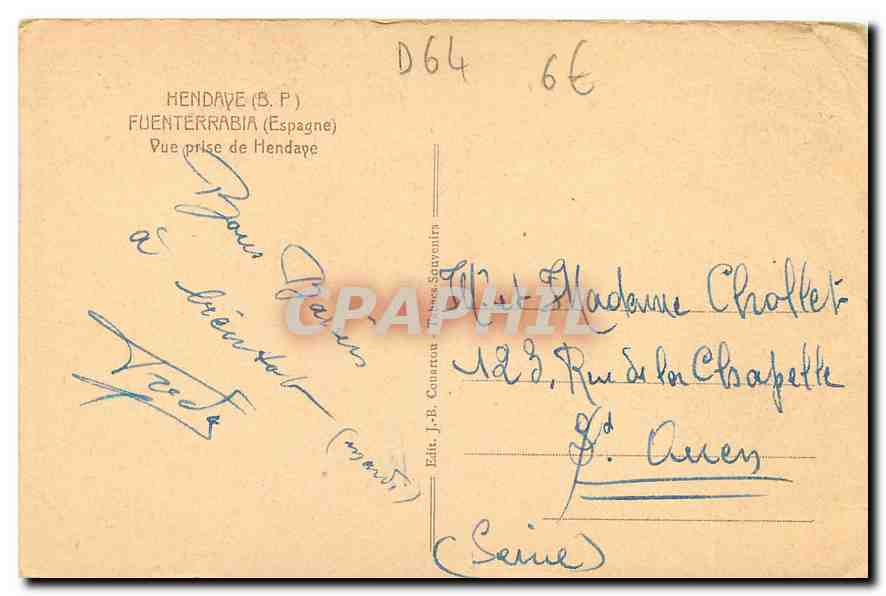 D64
6€
HENDAYE (B. P.)
FUENTERRABIA (Espagne)
Vue prise de Hendaye
Bons Baisers
à bientot
(mardi)
Edit. J.-B. Couartou - Tabacs-Souvenirs
Mr et Madame Chollet
123, Rue de la Chapelle
St. Ouen
(Seine)
CPAPHIL